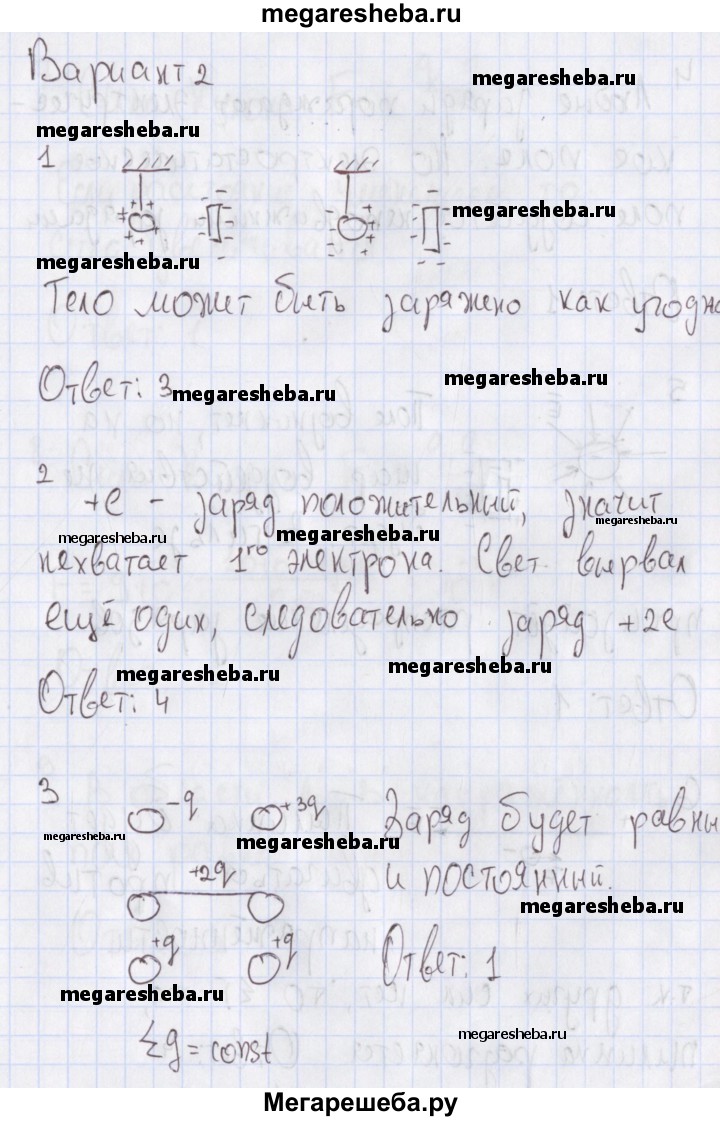 megaresheba.ru
Вариант 2
megaresheba.ru
megaresheba.ru
1
megaresheba.ru
megaresheba.ru
Тело может быть заряжено как угодно
Ответ: 3
megaresheba.ru
megaresheba.ru
2
+e - заряд положительный, значит
megaresheba.ru
megaresheba.ru
megaresheba.ru
нехватает 1го электрона. Свет вырвал
ещё один, следовательно заряд +2e
megaresheba.ru
megaresheba.ru
Ответ: 4
3
-q +3q Заряд будет равны
megaresheba.ru
megaresheba.ru
+2q и постоянный.
megaresheba.ru
+q +q Ответ: 1
megaresheba.ru
Σq = const
megaresheba.ru
Мегарешеба.ру